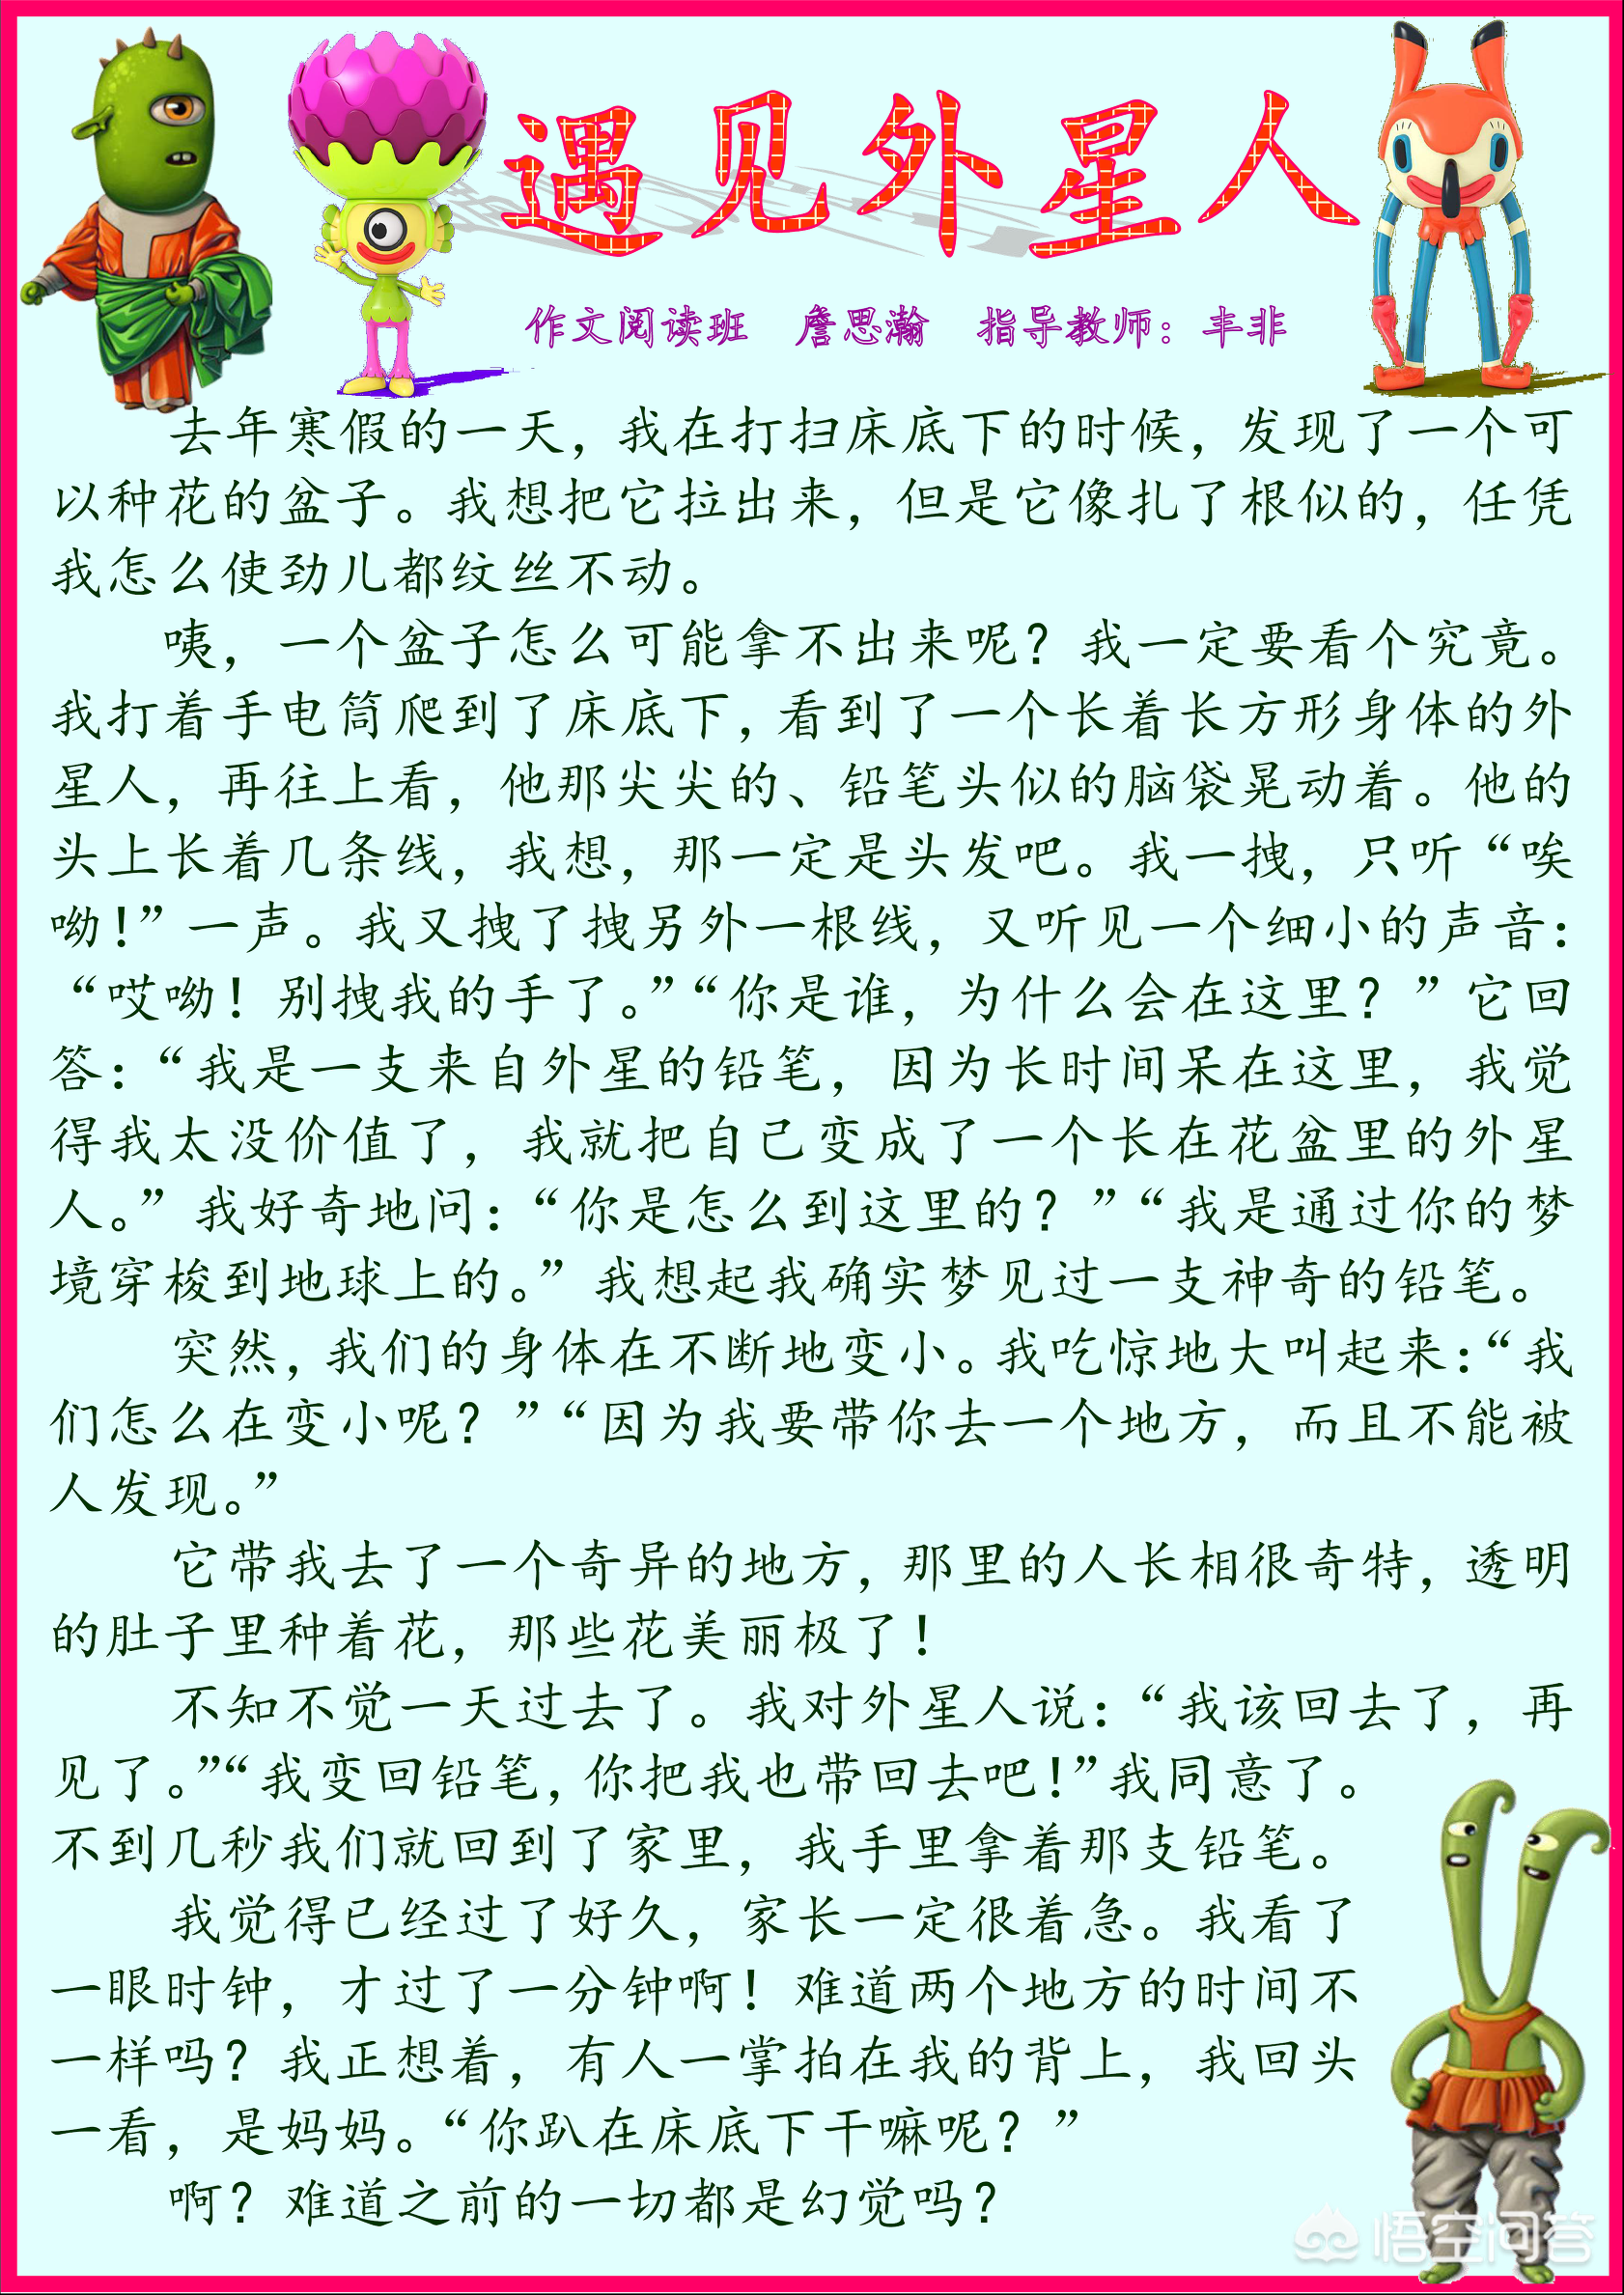 遇见外星人
作文阅读班 詹思瀚 指导教师：丰非
去年寒假的一天，我在打扫床底下的时候，发现了一个可
以种花的盆子。我想把它拉出来，但是它像扎了根似的，任凭
我怎么使劲儿都纹丝不动。
咦，一个盆子怎么可能拿不出来呢？我一定要看个究竟。
我打着手电筒爬到了床底下，看到了一个长着长方形身体的外
星人，再往上看，他那尖尖的、铅笔头似的脑袋晃动着。他的
头上长着几条线，我想，那一定是头发吧。我一拽，只听“唉
呦！”一声。我又拽了拽另外一根线，又听见一个细小的声音：
“哎呦！别拽我的手了。”“你是谁，为什么会在这里？”它回
答：“我是一支来自外星的铅笔，因为长时间呆在这里，我觉
得我太没价值了，我就把自己变成了一个长在花盆里的外星
人。”我好奇地问：“你是怎么到这里的？”“我是通过你的梦
境穿梭到地球上的。”我想起我确实梦见过一支神奇的铅笔。
突然，我们的身体在不断地变小。我吃惊地大叫起来：“我
们怎么在变小呢？”“因为我要带你去一个地方，而且不能被
人发现。”
它带我去了一个奇异的地方，那里的人长相很奇特，透明
的肚子里种着花，那些花美丽极了！
不知不觉一天过去了。我对外星人说：“我该回去了，再
见了。”“我变回铅笔，你把我也带回去吧！”我同意了。
不到几秒我们就回到了家里，我手里拿着那支铅笔。
我觉得已经过了好久，家长一定很着急。我看了
一眼时钟，才过了一分钟啊！难道两个地方的时间不
一样吗？我正想着，有人一掌拍在我的背上，我回头
一看，是妈妈。“你趴在床底下干嘛呢？”
啊？难道之前的一切都是幻觉吗？
悟空问答